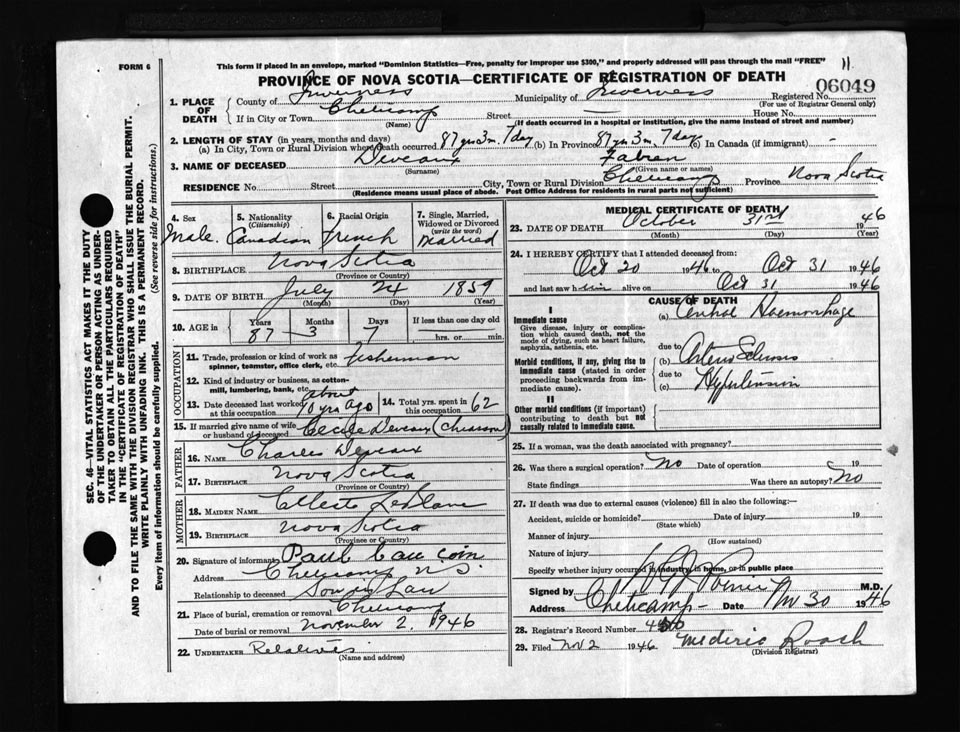 FORM 6
This form if placed in an envelope, marked "Dominion Statistics—Free, penalty for improper use $300," and properly addressed will pass through the mail "FREE"
11.
PROVINCE OF NOVA SCOTIA—CERTIFICATE OF REGISTRATION OF DEATH
06049
1. PLACE OF DEATH County of Inverness Municipality of Inverness Registered No. (For use of Registrar General only)
If in City or Town Cheticamp (Name) Street — House No.
(If death occurred in a hospital or institution, give its name instead of street and number)
2. LENGTH OF STAY (in years, months and days)
(a) In City, Town or Rural Division where death occurred 87 yrs 3 m. 7 day (b) In Province 87 yrs 3 m. 7 day (c) In Canada (if immigrant)
3. NAME OF DECEASED Deveaux (Surname) Fabien (Given name or names)
RESIDENCE No. Street City, Town or Rural Division Cheticamp Province Nova Scotia
(Residence means usual place of abode. Post Office Address for residents in rural parts not sufficient)
4. Sex Male.
5. Nationality (Citizenship) Canadian
6. Racial Origin French
7. Single, Married, Widowed or Divorced (write the word) Married
8. BIRTHPLACE Nova Scotia (Province or Country)
9. DATE OF BIRTH July (Month) 24 (Day) 1859 (Year)
10. AGE in Years 87 Months 3 Days 7 If less than one day old hrs. or min.
OCCUPATION
11. Trade, profession or kind of work as spinner, teamster, office clerk, etc. fisherman
12. Kind of industry or business, as cotton-mill, lumbering, bank, etc.
13. Date deceased last worked at this occupation about 10 yrs ago 14. Total yrs. spent in this occupation 62
15. If married give name of wife or husband of deceased Cecile Deveaux (Chiasson)
FATHER
16. NAME Charles Deveaux
17. BIRTHPLACE Nova Scotia (Province or Country)
MOTHER
18. MAIDEN NAME Celleste LeBlanc
19. BIRTHPLACE Nova Scotia (Province or Country)
20. Signature of informant Paul Caucoin
Address Cheticamp N.S.
Relationship to deceased Son in Law
21. Place of burial, cremation or removal Cheticamp
Date of burial or removal November 2, 1946
22. UNDERTAKER Relatives (Name and address)
MEDICAL CERTIFICATE OF DEATH
23. DATE OF DEATH October (Month) 31st (Day) 1946 (Year)
24. I HEREBY CERTIFY that I attended deceased from:
Oct 20 1946 to Oct 31 1946
and last saw him alive on Oct 31 1946
CAUSE OF DEATH
I
Immediate cause
Give disease, injury or complication which caused death, not the mode of dying, such as heart failure, asphyxia, asthenia, etc.
(a) Cerebral Haemorrhage
due to
Morbid conditions, if any, giving rise to immediate cause (stated in order proceeding backwards from immediate cause).
(b) Arterio Sclerosis
due to
(c) Hypertension
II
Other morbid conditions (if important) contributing to death but not causally related to immediate cause.
25. If a woman, was the death associated with pregnancy?
26. Was there a surgical operation? No Date of operation 19
State findings Was there an autopsy? No
27. If death was due to external causes (violence) fill in also the following:—
Accident, suicide or homicide? (State which) Date of injury 19
Manner of injury (How sustained)
Nature of injury
Specify whether injury occurred in industry, in home, or in public place
Signed by M.D.
Address Cheticamp Date Nov 30 1946
28. Registrar's Record Number
29. Filed Nov 2 1946 Mederic Roach (Division Registrar)
SEC. 46—VITAL STATISTICS ACT MAKES IT THE DUTY
OF THE UNDERTAKER OR PERSON ACTING AS UNDER-
TAKER TO OBTAIN ALL THE PARTICULARS REQUIRED
IN THE "CERTIFICATE OF REGISTRATION OF DEATH"
AND TO FILE THE SAME WITH THE DIVISION REGISTRAR WHO SHALL ISSUE THE BURIAL PERMIT.
WRITE PLAINLY WITH UNFADING INK. THIS IS A PERMANENT RECORD.
Every item of information should be carefully supplied. (See reverse side for instructions.)